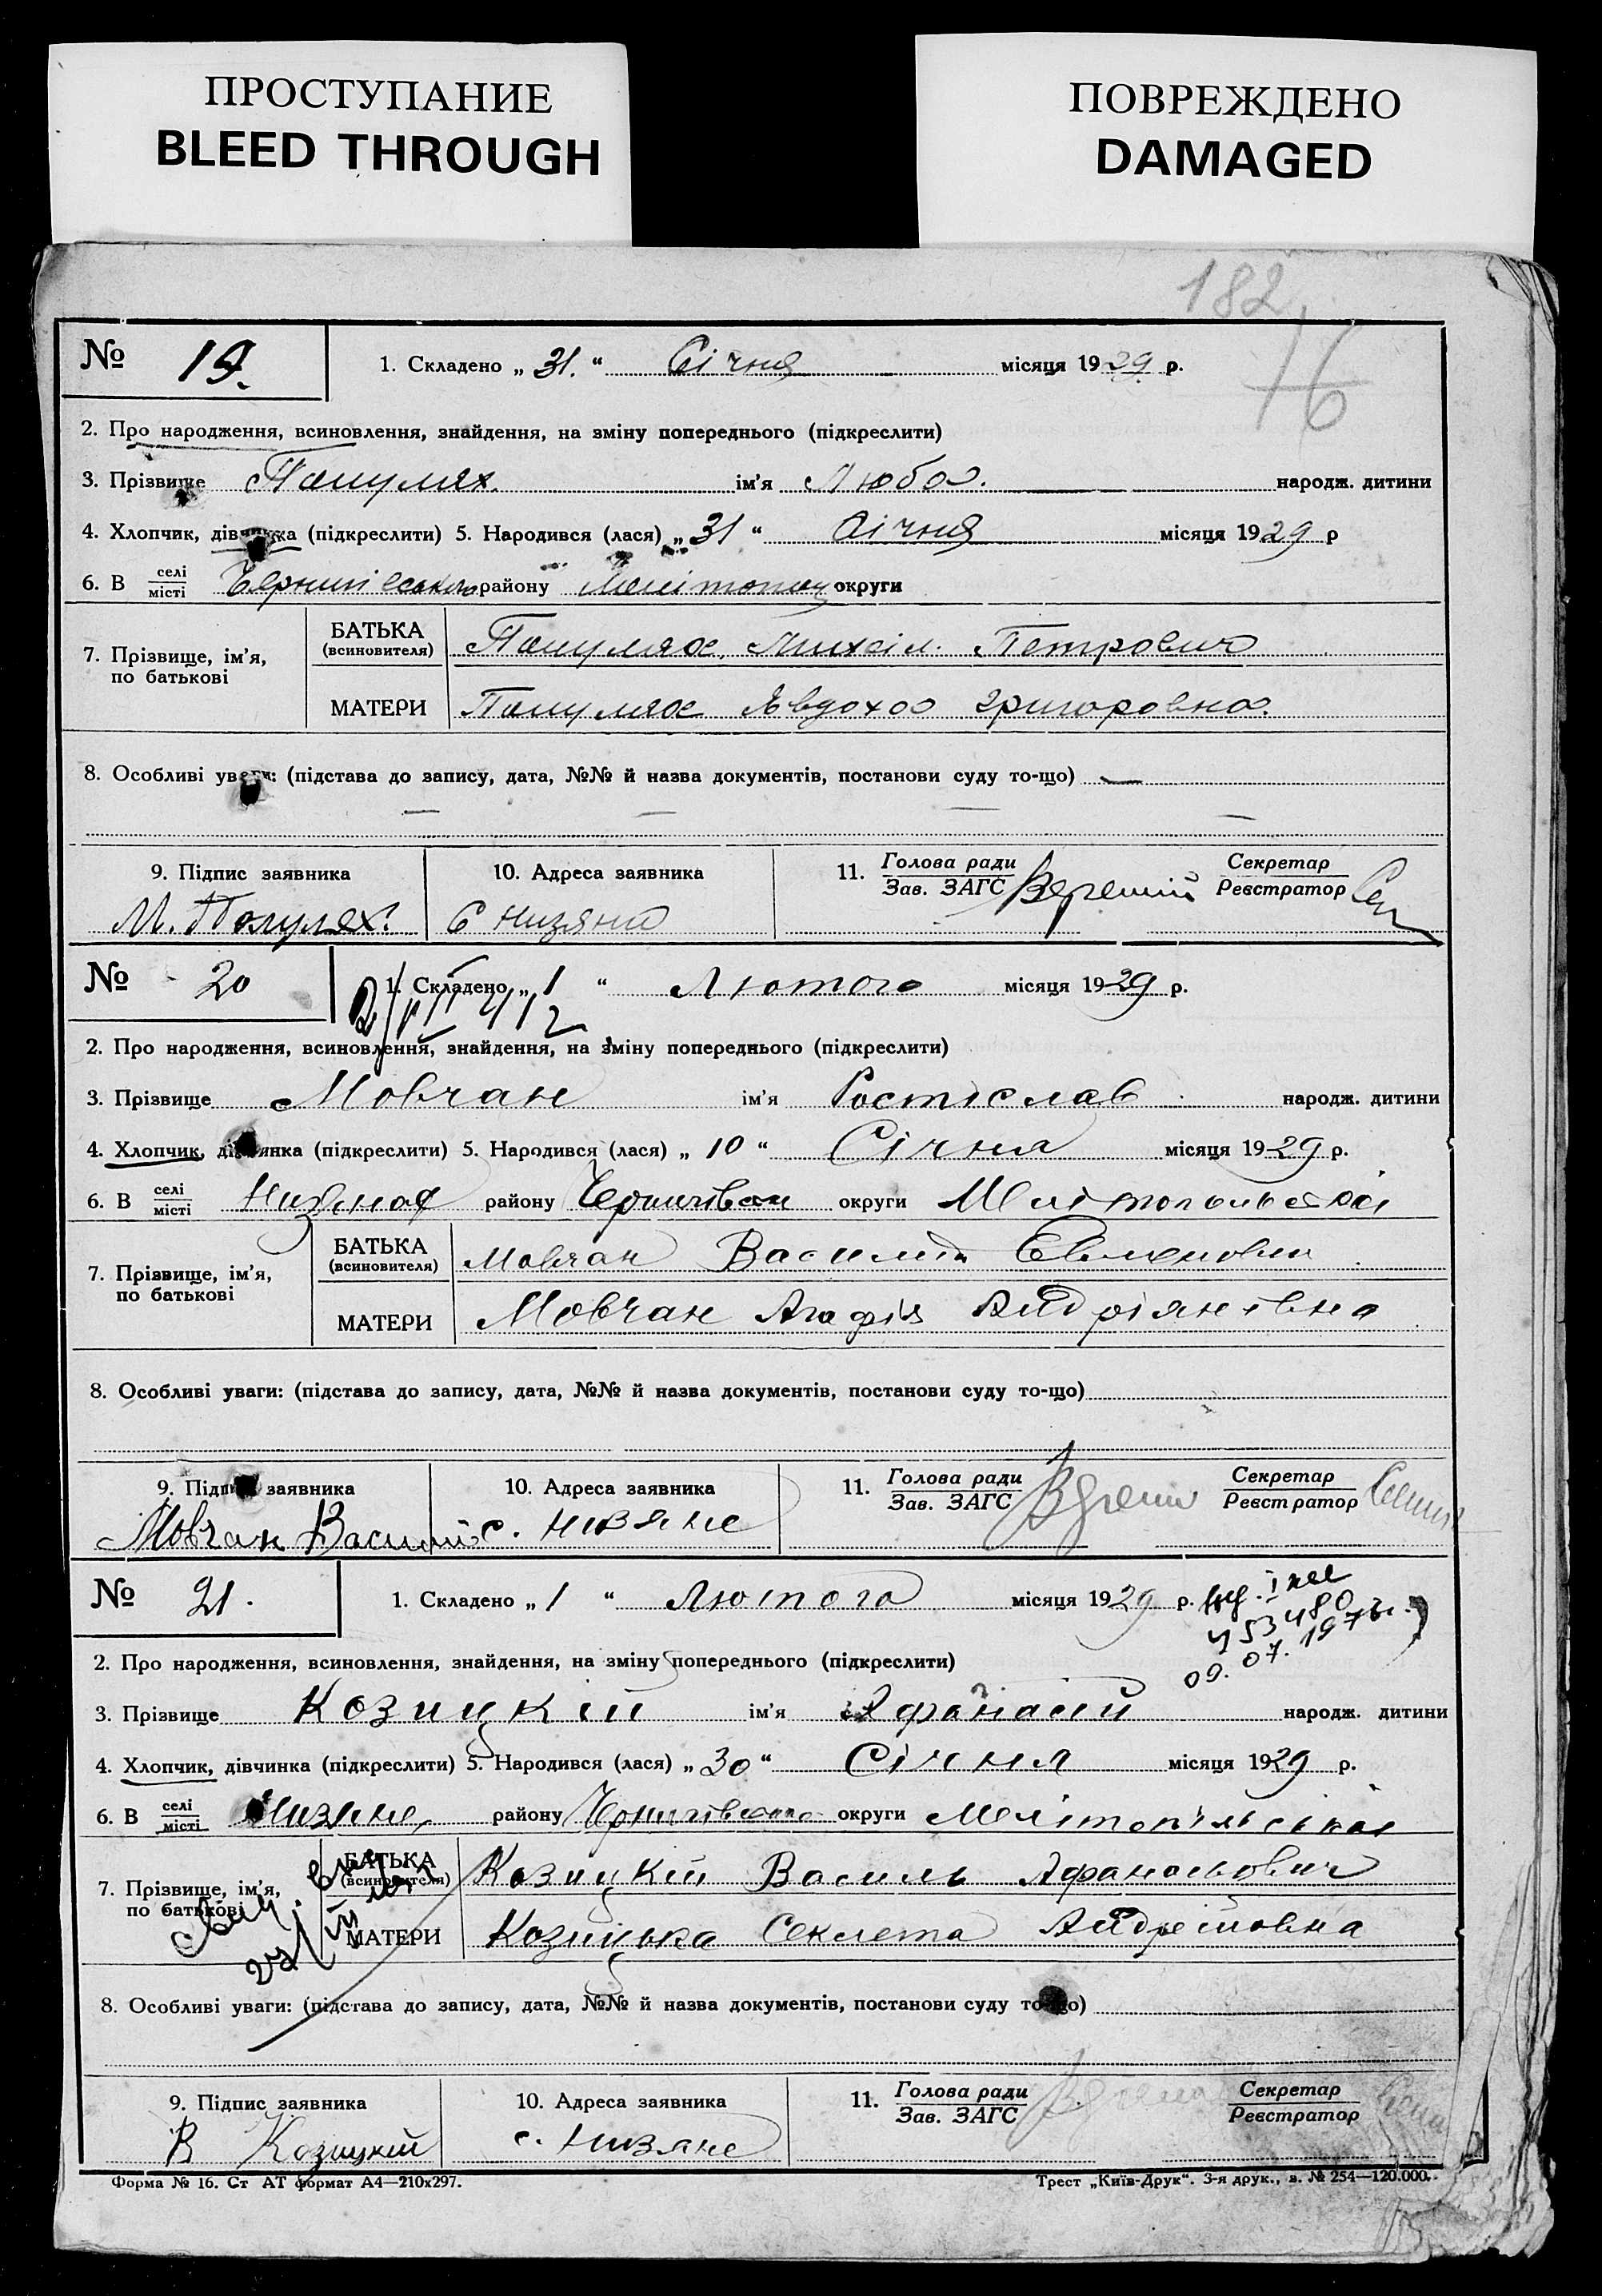 ПРОСТУПАНИЕ
BLEED THROUGH
ПОВРЕЖДЕНО
DAMAGED
182
16
№ 19. 1. Складено „ 31. “ Січня місяця 1929 р.
2. Про народження, всиновлення, знайдення, на зміну попереднього (підкреслити)
3. Прізвище ім'я Люба. народж. дитини
4. Хлопчик, дівчинка (підкреслити) 5. Народився (лася) „ 31 “ Січня місяця 1929 р
6. В селі місті району округи
7. Прізвище, ім'я, по батькові
БАТЬКА (всиновителя) Михайл. Петрович
МАТЕРИ Явдоха Григоровна.
8. Особливі уваги: (підстава до запису, дата, №№ й назва документів, постанови суду то-що) —
9. Підпис заявника 10. Адреса заявника 11. Голова ради Зав. ЗАГС Секретар Реєстратор
М. С Низяни
№ 20 1. Складено „ 1 “ Лютого місяця 1929 р.
2. Про народження, всиновлення, знайдення, на зміну попереднього (підкреслити)
3. Прізвище Мовчан ім'я Ростислав народж. дитини
4. Хлопчик, дівчинка (підкреслити) 5. Народився (лася) „ 10 “ Січня місяця 1929 р.
6. В селі місті району округи Мелітопольської
7. Прізвище, ім'я, по батькові
БАТЬКА (всиновителя) Мовчан Василий
МАТЕРИ Мовчан Агафія Андріянівна
8. Особливі уваги: (підстава до запису, дата, №№ й назва документів, постанови суду то-що)
9. Підпис заявника 10. Адреса заявника 11. Голова ради Зав. ЗАГС Секретар Реєстратор
Мовчан Василий с. Низяне
№ 21. 1. Складено „ 1 “ Лютого місяця 1929 р.
453480
09. 07. 197
2. Про народження, всиновлення, знайдення, на зміну попереднього (підкреслити)
3. Прізвище Козицкій ім'я Афанасій народж. дитини
4. Хлопчик, дівчинка (підкреслити) 5. Народився (лася) „ 30 “ Січня місяця 1929 р.
6. В селі місті Низяне, району округи Мелітопільської
7. Прізвище, ім'я, по батькові
БАТЬКА (всиновителя) Козицкій Василь Афанасьович
МАТЕРИ Козицька Секлета Андрейовна
8. Особливі уваги: (підстава до запису, дата, №№ й назва документів, постанови суду то-що)
9. Підпис заявника 10. Адреса заявника 11. Голова ради Зав. ЗАГС Секретар Реєстратор
В Козицкій с. Низяне
Форма № 16. Ст АТ формат А4—210х297. Трест „Київ-Друк“. 3-я друк., з. № 254—120.000.